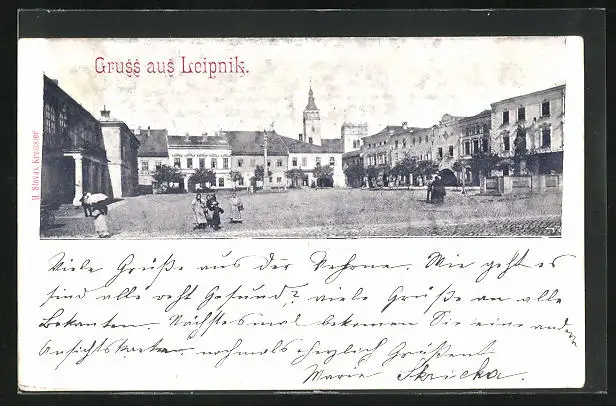 Gruss aus Leipnik.
H. Slovak Kremsier
Viele Grüße aus der Ferne. Wie geht es
sind alle recht Gesund? viele Grüße an alle
Bekanten. Nächstesmal bekommen Sie eine andere
Ansichtskarten nochmals herzlich Grüßent
Marie Skricka.